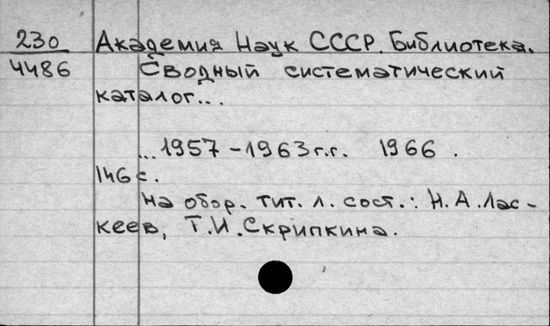 230 Академия Наук СССР. Библиотека.
4486 Сводный систематический
каталог...
...1957-1963г.г. 1966.
146с.
На обор. тит. л. сост.: Н.А.Лас-
кеев, Т.И.Скрипкина.